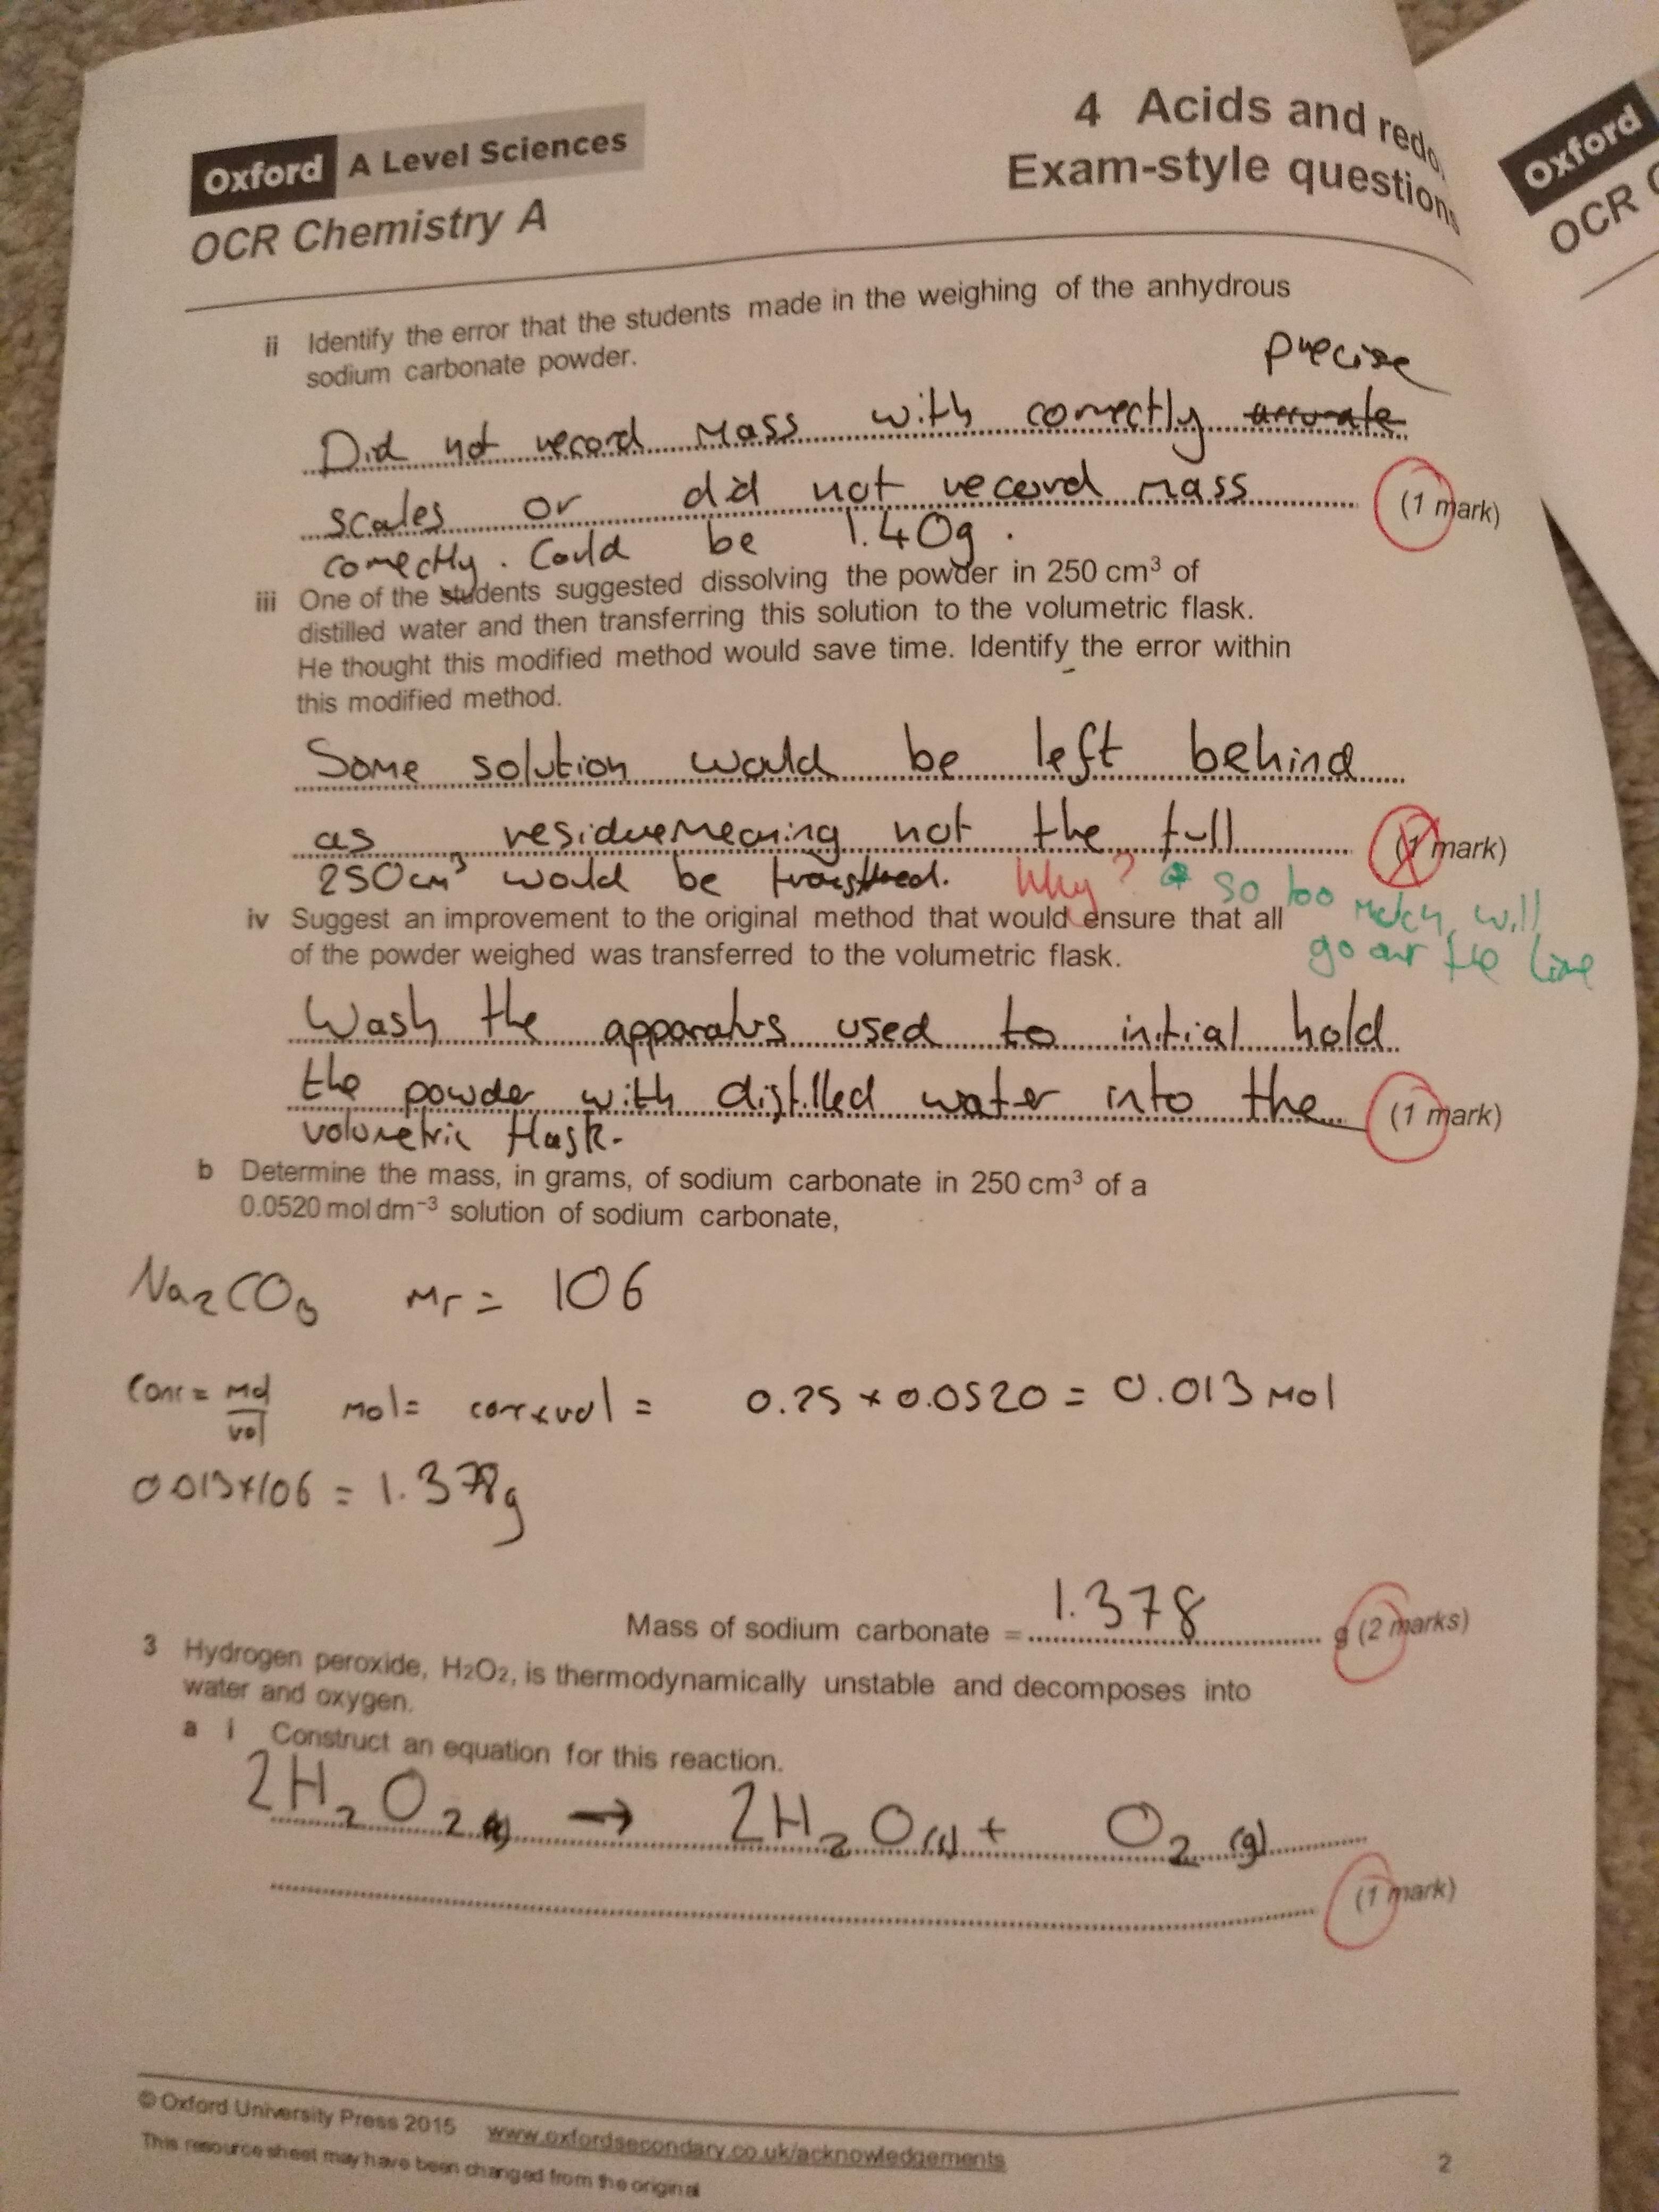 Oxford A Level Sciences
OCR Chemistry A
4 Acids and redo
Exam-style questions
Oxford
OCR C
ii Identify the error that the students made in the weighing of the anhydrous
sodium carbonate powder.
precise
Did not record mass with correctly accurate
scales or did not record mass
(1 mark)
correctly. Could be 1.40g.
iii One of the students suggested dissolving the powder in 250 cm³ of
distilled water and then transferring this solution to the volumetric flask.
He thought this modified method would save time. Identify the error within
this modified method.
Some solution would be left behind
as residue meaning not the full
(1 mark)
250cm³ would be transferred. Why? so too much will
go over the line
iv Suggest an improvement to the original method that would ensure that all
of the powder weighed was transferred to the volumetric flask.
Wash the apparatus used to initial hold
the powder with distilled water into the
(1 mark)
volumetric flask.
b Determine the mass, in grams, of sodium carbonate in 250 cm³ of a
0.0520 mol dm⁻³ solution of sodium carbonate,
Na₂CO₃ Mr = 106
Conc = mol/vol mol = conc x vol = 0.25 x 0.0520 = 0.013 mol
0.013 x 106 = 1.378g
Mass of sodium carbonate = 1.378 g (2 marks)
3 Hydrogen peroxide, H₂O₂, is thermodynamically unstable and decomposes into
water and oxygen.
a i Construct an equation for this reaction.
2H₂O₂ → 2H₂O(l) + O₂(g)
(1 mark)
© Oxford University Press 2015 www.oxfordsecondary.co.uk/acknowledgements
This resource sheet may have been changed from the original
2